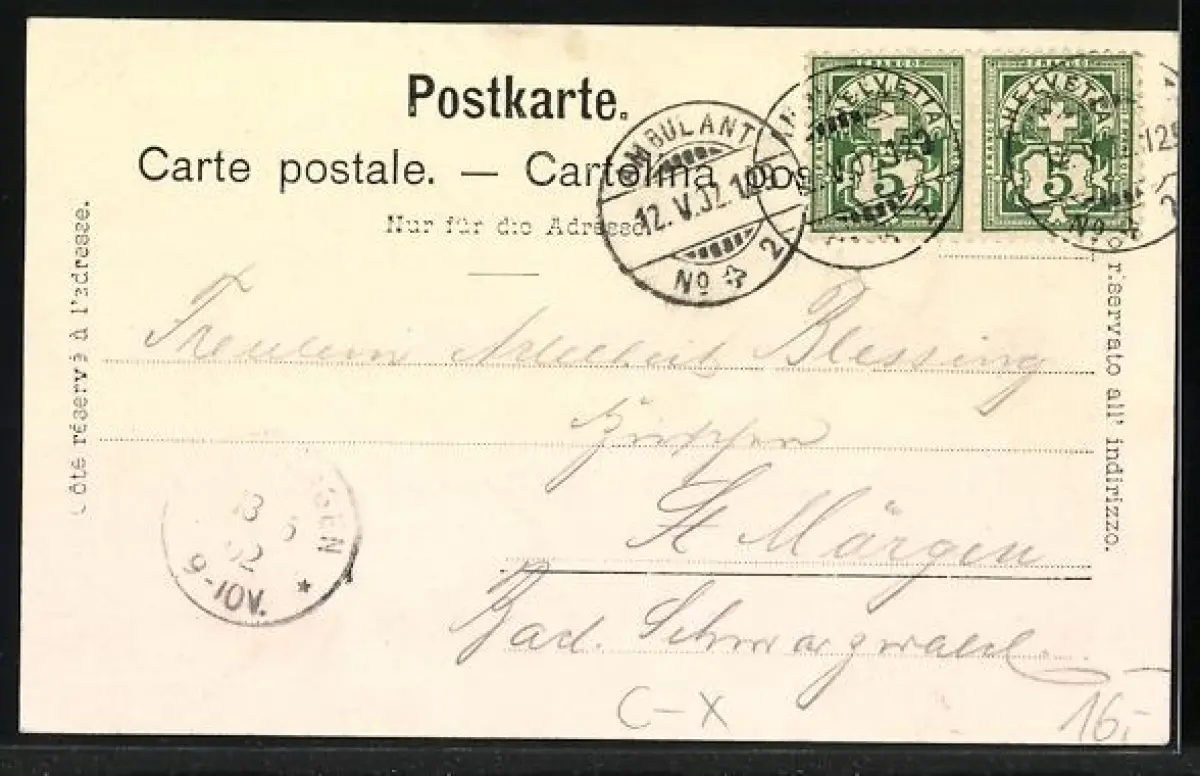 Postkarte.
Carte postale. — Cartolina pos
Nur für die Adresse
Côté réservé à l'adresse.
riservato all' indirizzo.
FRANCO
HELVETIA
5
FRANCO
HELVETIA
5
AMBULANT
12.V.02.
No 2
No 2
Fräulein Blessing
St Märgen
Bad. Schwarzwald.
GEN
13 5
02
9-10V.
C-X
16,-